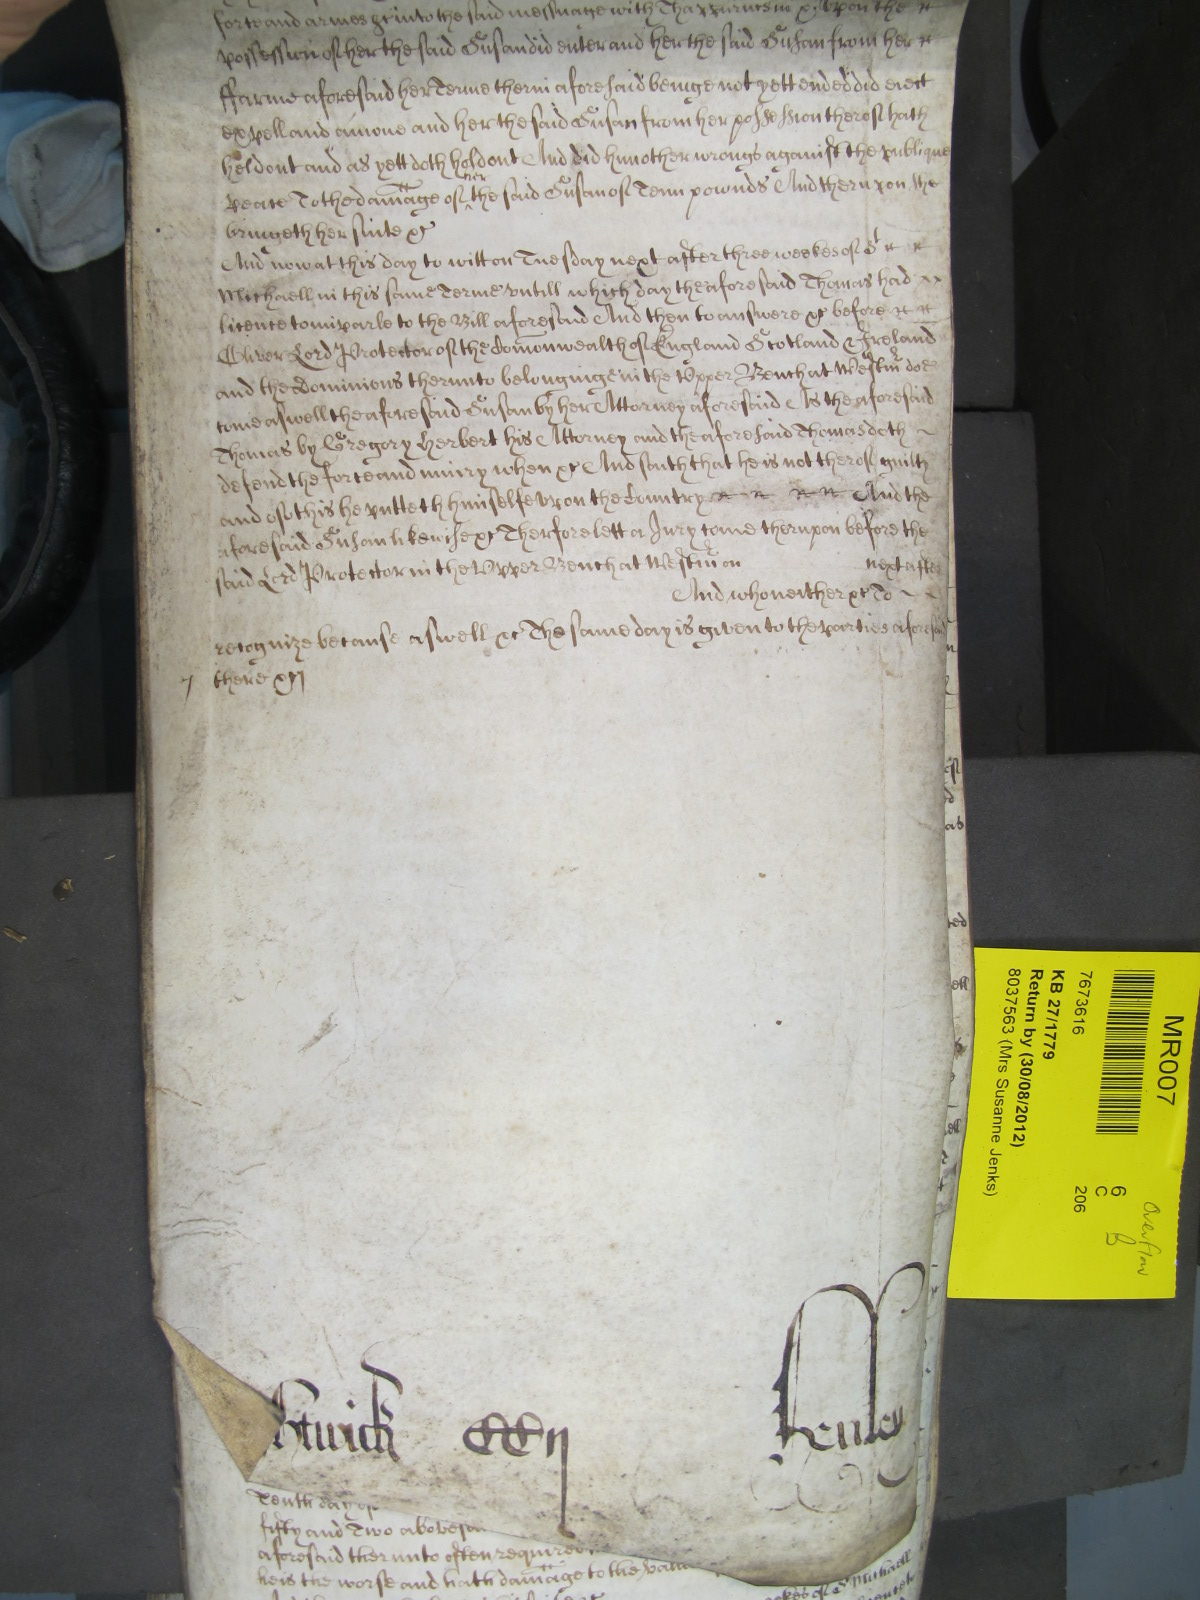 force and armes &c into the said messuage with Thappurtenn &c upon the
possession of her the said Susan did enter and her the said Susan from her
ffarme aforesaid her Terme therin aforesaid beinge not yett ended did eiect
expell and amove and her the said Susan from her possession therof hath
held out and as yett doth hold out And did him other wrongs against the publique
peace To the damage of her the said Susan of Tenn pownds And therupon she
bringeth her suite &c
And now at this day to witt on Tuesday next after three weekes of St
Michaell in this same Terme untill which day the aforesaid Thomas had
licence to imparle to the Bill aforesaid And then to answere &c before
Oliver Lord Protector of the Comonwealth of England Scotland & Ireland
and the Dominions therunto belonginge in the Upper Bench at Westm doe
come aswell the aforesaid Susan by her Attorney aforesaid As the aforesaid
Thomas by Gregory Herbert his Attorney and the aforesaid Thomas doth
defend the force and iniury when &c And saith that he is not therof guilty
and of this he putteth himselfe upon the Country And the
aforesaid Susan likewise &c Therfore lett a Jury come therupon before the
said Lord Protector in the Upper Bench at Westm on next after
And who neither &c To
recognize because aswell &c The same day is given to the parties aforesaid
there &c
twick CCij Henley
Tenth day of
fifty and Two abovesa
aforesaid therunto often required
he is the worse and hath damage to the value
MR007
7673616
KB 27/1779
Return by (30/08/2012)
8037563 (Mrs Susanne Jenks)
6
C
206
Overflow
B